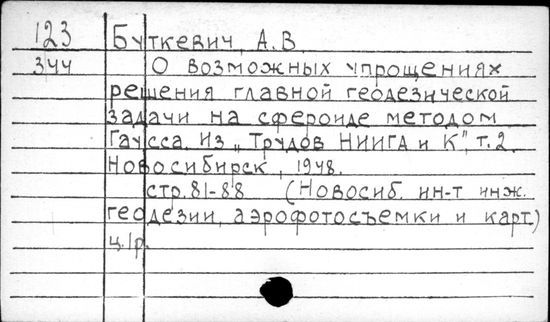 123 Буткевич, А.В.
344 О возможных упрощениях
решения главной геодезической
задачи на сфероиде методом
Гаусса. Из „Трудов НИИГА и К", т.2.
Новосибирск, 1948.
стр.81-88 (Новосиб. ин-т инж.
геодезии, аэрофотосъемки и карт.)
ц.1р.